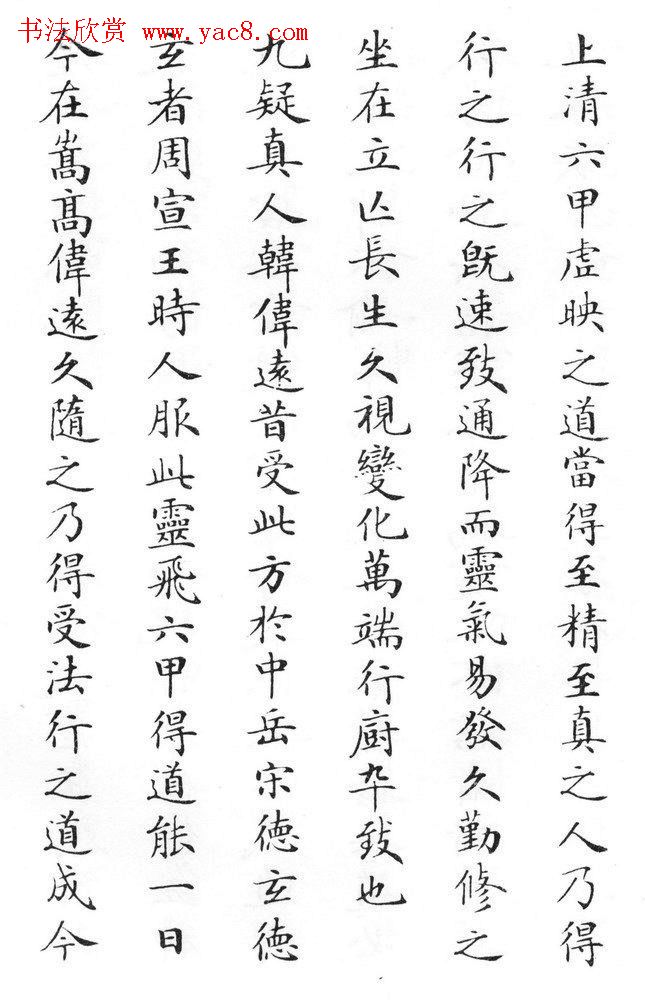 书法欣赏 www.yac8.com
上清六甲虛映之道當得至精至真之人乃得
行之行之既速致通降而靈氣易發久勤修之
坐在立亾長生久視變化萬端行廚卒致也
九疑真人韓偉遠昔受此方於中岳宋德玄德
玄者周宣王時人服此靈飛六甲得道能一日
今在嵩高偉遠久隨之乃得受法行之道成今